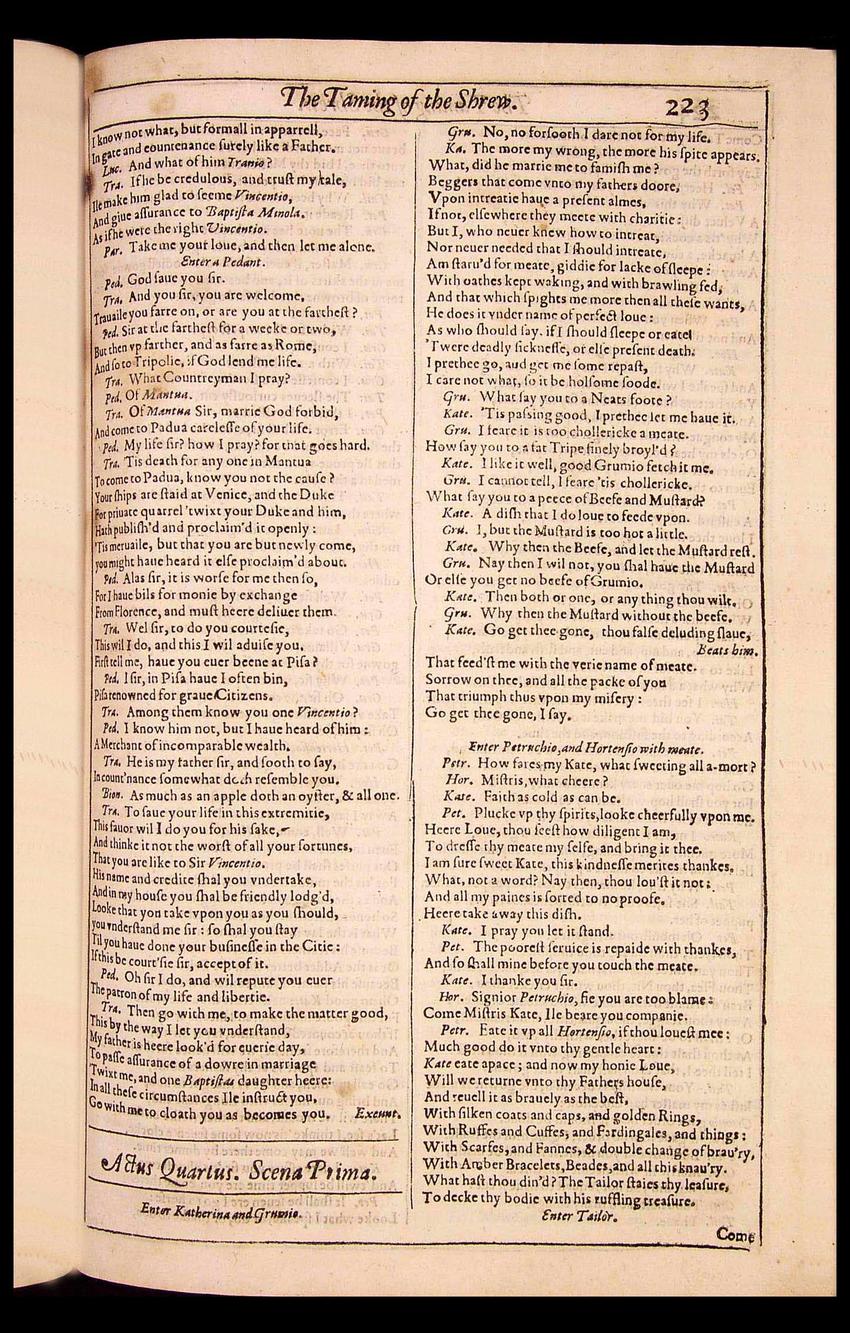 The Taming of the Shrew. 223
I know not what, but formall in apparrell,
In gate and countenance surely like a Father.
Luc. And what of him Tranio?
Tra. If he be credulous, and trust my tale,
Ile make him glad to seeme Vincentio,
And giue assurance to Baptista Minola.
As if he were the right Vincentio.
Par. Take me your loue, and then let me alone.
Enter a Pedant.
Ped. God saue you sir.
Tra. And you sir, you are welcome,
Trauaile you farre on, or are you at the farthest?
Ped. Sir at the farthest for a weeke or two,
But then vp farther, and as farre as Rome,
And so to Tripolie, if God lend me life.
Tra. What Countreyman I pray?
Ped. Of Mantua.
Tra. Of Mantua Sir, marrie God forbid,
And come to Padua carelesse of your life.
Ped. My life sir? how I pray? for that goes hard.
Tra. 'Tis death for any one in Mantua
To come to Padua, know you not the cause?
Your ships are staid at Venice, and the Duke
For priuate quarrel 'twixt your Duke and him,
Hath publish'd and proclaim'd it openly:
'Tis meruaile, but that you are but newly come,
you might haue heard it else proclaim'd about.
Ped. Alas sir, it is worse for me then so,
For I haue bils for monie by exchange
From Florence, and must heere deliuer them.
Tra. Wel sir, to do you courtesie,
This wil I do, and this I wil aduise you.
First tell me, haue you euer beene at Pisa?
Ped. I sir, in Pisa haue I often bin,
Pisa renowned for graue Citizens.
Tra. Among them know you one Vincentio?
Ped. I know him not, but I haue heard of him:
A Merchant of incomparable wealth.
Tra. He is my father sir, and sooth to say,
In count'nance somewhat doth resemble you.
Bion. As much as an apple doth an oyster, & all one.
Tra. To saue your life in this extremitie,
This fauor wil I do you for his sake,
And thinke it not the worst of all your fortunes,
That you are like to Sir Vincentio.
His name and credite shal you vndertake,
And in my house you shal be friendly lodg'd,
Looke that you take vpon you as you should,
you vnderstand me sir: so shal you stay
Til you haue done your businesse in the Citie:
If this be court'sie sir, accept of it.
Ped. Oh sir I do, and wil repute you euer
The patron of my life and libertie.
Tra. Then go with me, to make the matter good,
This by the way I let you vnderstand,
My father is heere look'd for euerie day,
To passe assurance of a dowre in marriage
'Twixt me, and one Baptistas daughter heere:
In all these circumstances Ile instruct you,
Go with me to cloath you as becomes you. Exeunt.
Actus Quartus. Scena Prima.
Enter Katherina and Grumio.
Gru. No, no forsooth I dare not for my life.
Ka. The more my wrong, the more his spite appears.
What, did he marrie me to famish me?
Beggers that come vnto my fathers doore,
Vpon intreatie haue a present almes,
If not, elsewhere they meete with charitie:
But I, who neuer knew how to intreat,
Nor neuer needed that I should intreate,
Am staru'd for meate, giddie for lacke of sleepe:
With oathes kept waking, and with brawling fed,
And that which spights me more then all these wants,
He does it vnder name of perfect loue:
As who should say. if I should sleepe or eate
'Twere deadly sicknesse, or else present death.
I prethee go, and get me some repast,
I care not what, so it be holsome foode.
Gru. What say you to a Neats foote?
Kate. 'Tis passing good, I prethee let me haue it.
Gru. I feare it is too chollericke a meate.
How say you to a fat Tripe finely broyl'd?
Kate. I like it well, good Grumio fetch it me.
Gru. I cannot tell, I feare 'tis chollericke.
What say you to a peece of Beefe and Mustard?
Kate. A dish that I do loue to feede vpon.
Gru. I, but the Mustard is too hot a little.
Kate. Why then the Beefe, and let the Mustard rest.
Gru. Nay then I wil not, you shal haue the Mustard
Or else you get no beefe of Grumio.
Kate. Then both or one, or any thing thou wilt.
Gru. Why then the Mustard without the beefe.
Kate. Go get thee gone, thou false deluding slaue,
Beats him.
That feed'st me with the verie name of meate.
Sorrow on thee, and all the packe of you
That triumph thus vpon my misery:
Go get thee gone, I say.
Enter Petruchio, and Hortensio with meate.
Petr. How fares my Kate, what sweeting all a-mort?
Hor. Mistris, what cheere?
Kate. Faith as cold as can be.
Pet. Plucke vp thy spirits, looke cheerfully vpon me.
Heere Loue, thou seest how diligent I am,
To dresse thy meate my selfe, and bring it thee.
I am sure sweet Kate, this kindnesse merites thankes.
What, not a word? Nay then, thou lou'st it not:
And all my paines is sorted to no proofe.
Heere take away this dish.
Kate. I pray you let it stand.
Pet. The poorest seruice is repaide with thankes,
And so shall mine before you touch the meate.
Kate. I thanke you sir.
Hor. Signior Petruchio, fie you are too blame:
Come Mistris Kate, Ile beare you companie.
Petr. Eate it vp all Hortensio, if thou louest mee:
Much good do it vnto thy gentle heart:
Kate eate apace; and now my honie Loue,
Will we returne vnto thy Fathers house,
And reuell it as brauely as the best,
With silken coats and caps, and golden Rings,
With Ruffes and Cuffes, and Fardingales, and things:
With Scarfes, and Fannes, & double change of brau'ry,
With Amber Bracelets, Beades, and all this knau'ry.
What hast thou din'd? The Tailor staies thy leasure,
To decke thy bodie with his ruffling treasure.
Enter Tailor.
Come